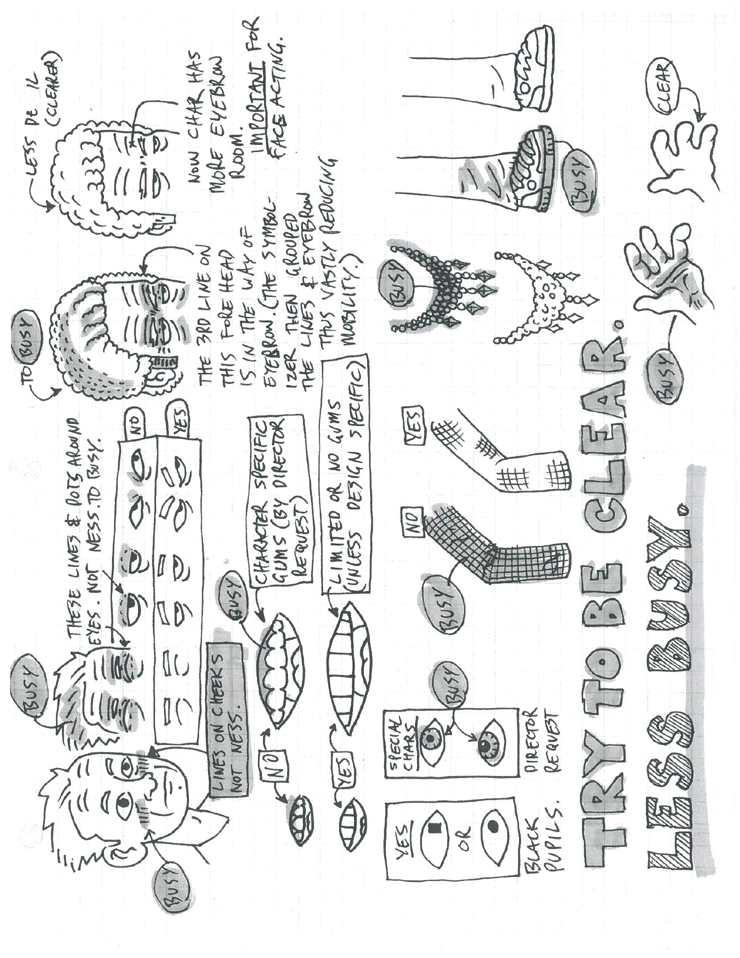 BUSY
BUSY
THESE LINES & DOTS AROUND
EYES. NOT NESS. TO BUSY.
NO
YES
LINES ON CHEEKS
NOT NESS.
TO BUSY
LESS DE IL
(CLEARER)
THE 3RD LINE ON
THIS FOREHEAD
IS IN THE WAY OF
EYEBROW. (THE SYMBOL-
IZER THEN GROUPED
THE LINES & EYEBROW
THUS VASTLY REDUCING
MOBILITY.)
NOW CHAR HAS
MORE EYEBROW
ROOM.
IMPORTANT FOR
FACE ACTING.
NO
BUSY
CHARACTER SPECIFIC
GUMS (BY DIRECTOR
REQUEST)
YES
LIMITED OR NO GUMS
(UNLESS DESIGN SPECIFIC)
YES
OR
BLACK
PUPILS.
SPECIAL
CHARS
BUSY
DIRECTOR
REQUEST
NO
BUSY
YES
BUSY
BUSY
TRY TO BE CLEAR.
LESS BUSY.
BUSY
CLEAR